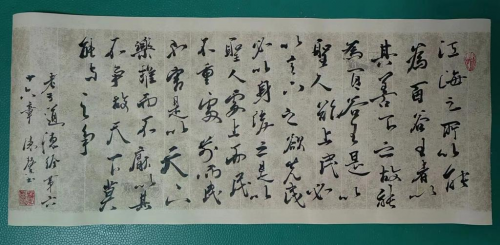 江海之所以能
為百谷王者以
其善下之故能
為百谷王是以
聖人欲上民必
以言下之欲先民
必以身後之是以
聖人處上而民
不重處前而民
不害是以天下
樂推而不厭以其
不爭故天下莫
能與之爭
老子道德經第六
十六章